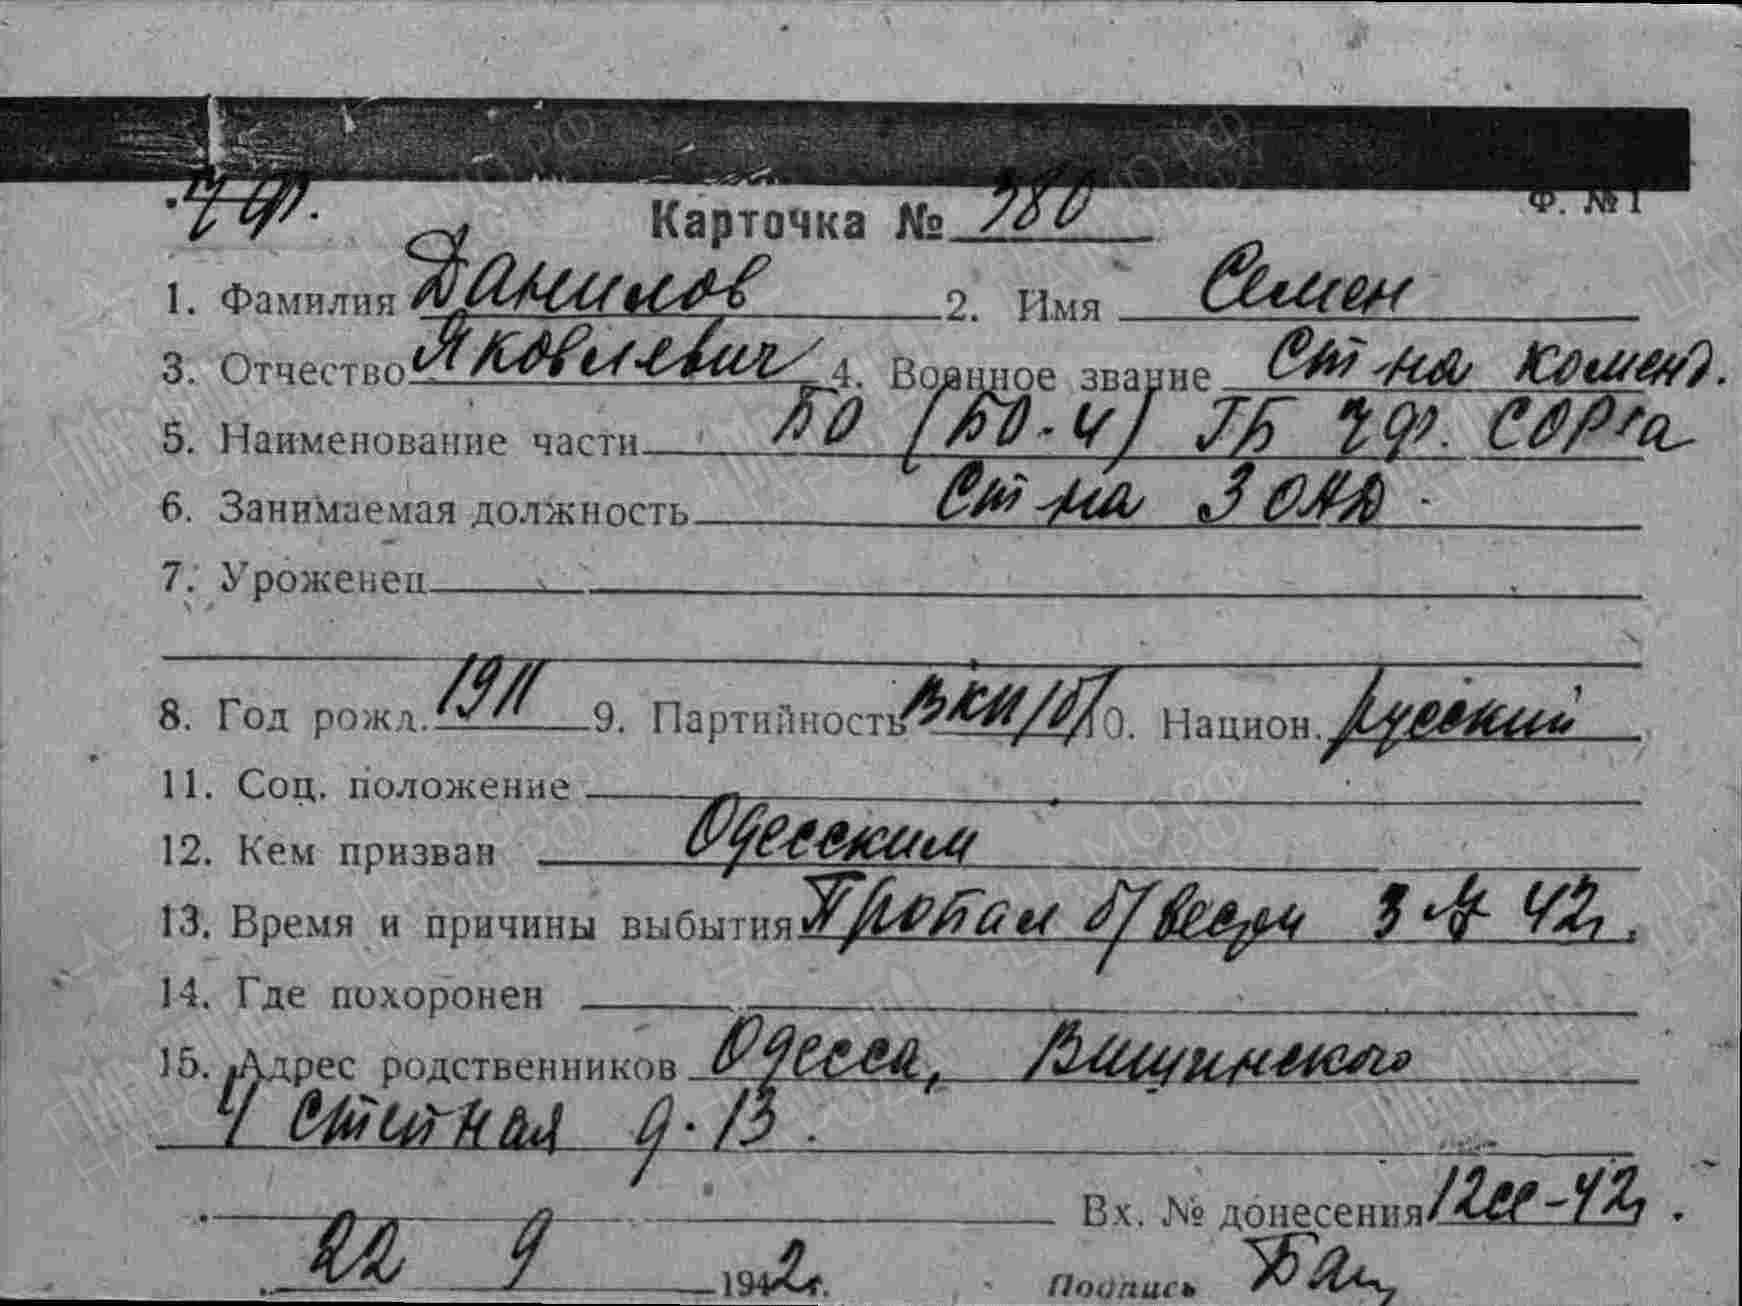 ЧФ.
Ф. №1
Карточка № 380
1. Фамилия Данилов 2. Имя Семен
3. Отчество Яковлевич 4. Военное звание Ст-на команд.
5. Наименование части БО (БО-4) ГБ ЧФ. СОРга
6. Занимаемая должность Ст-на ЗОАД.
7. Уроженец
8. Год рожд. 1911 9. Партийность ВКП/б/ 10. Национ. русский
11. Соц. положение
12. Кем призван Одесским
13. Время и причины выбытия Пропал б/вести 3 42г.
14. Где похоронен
15. Адрес родственников Одесса,
4 степная д. 13.
Вх. № донесения 12сс-42г.
22 9 1942г. Подпись